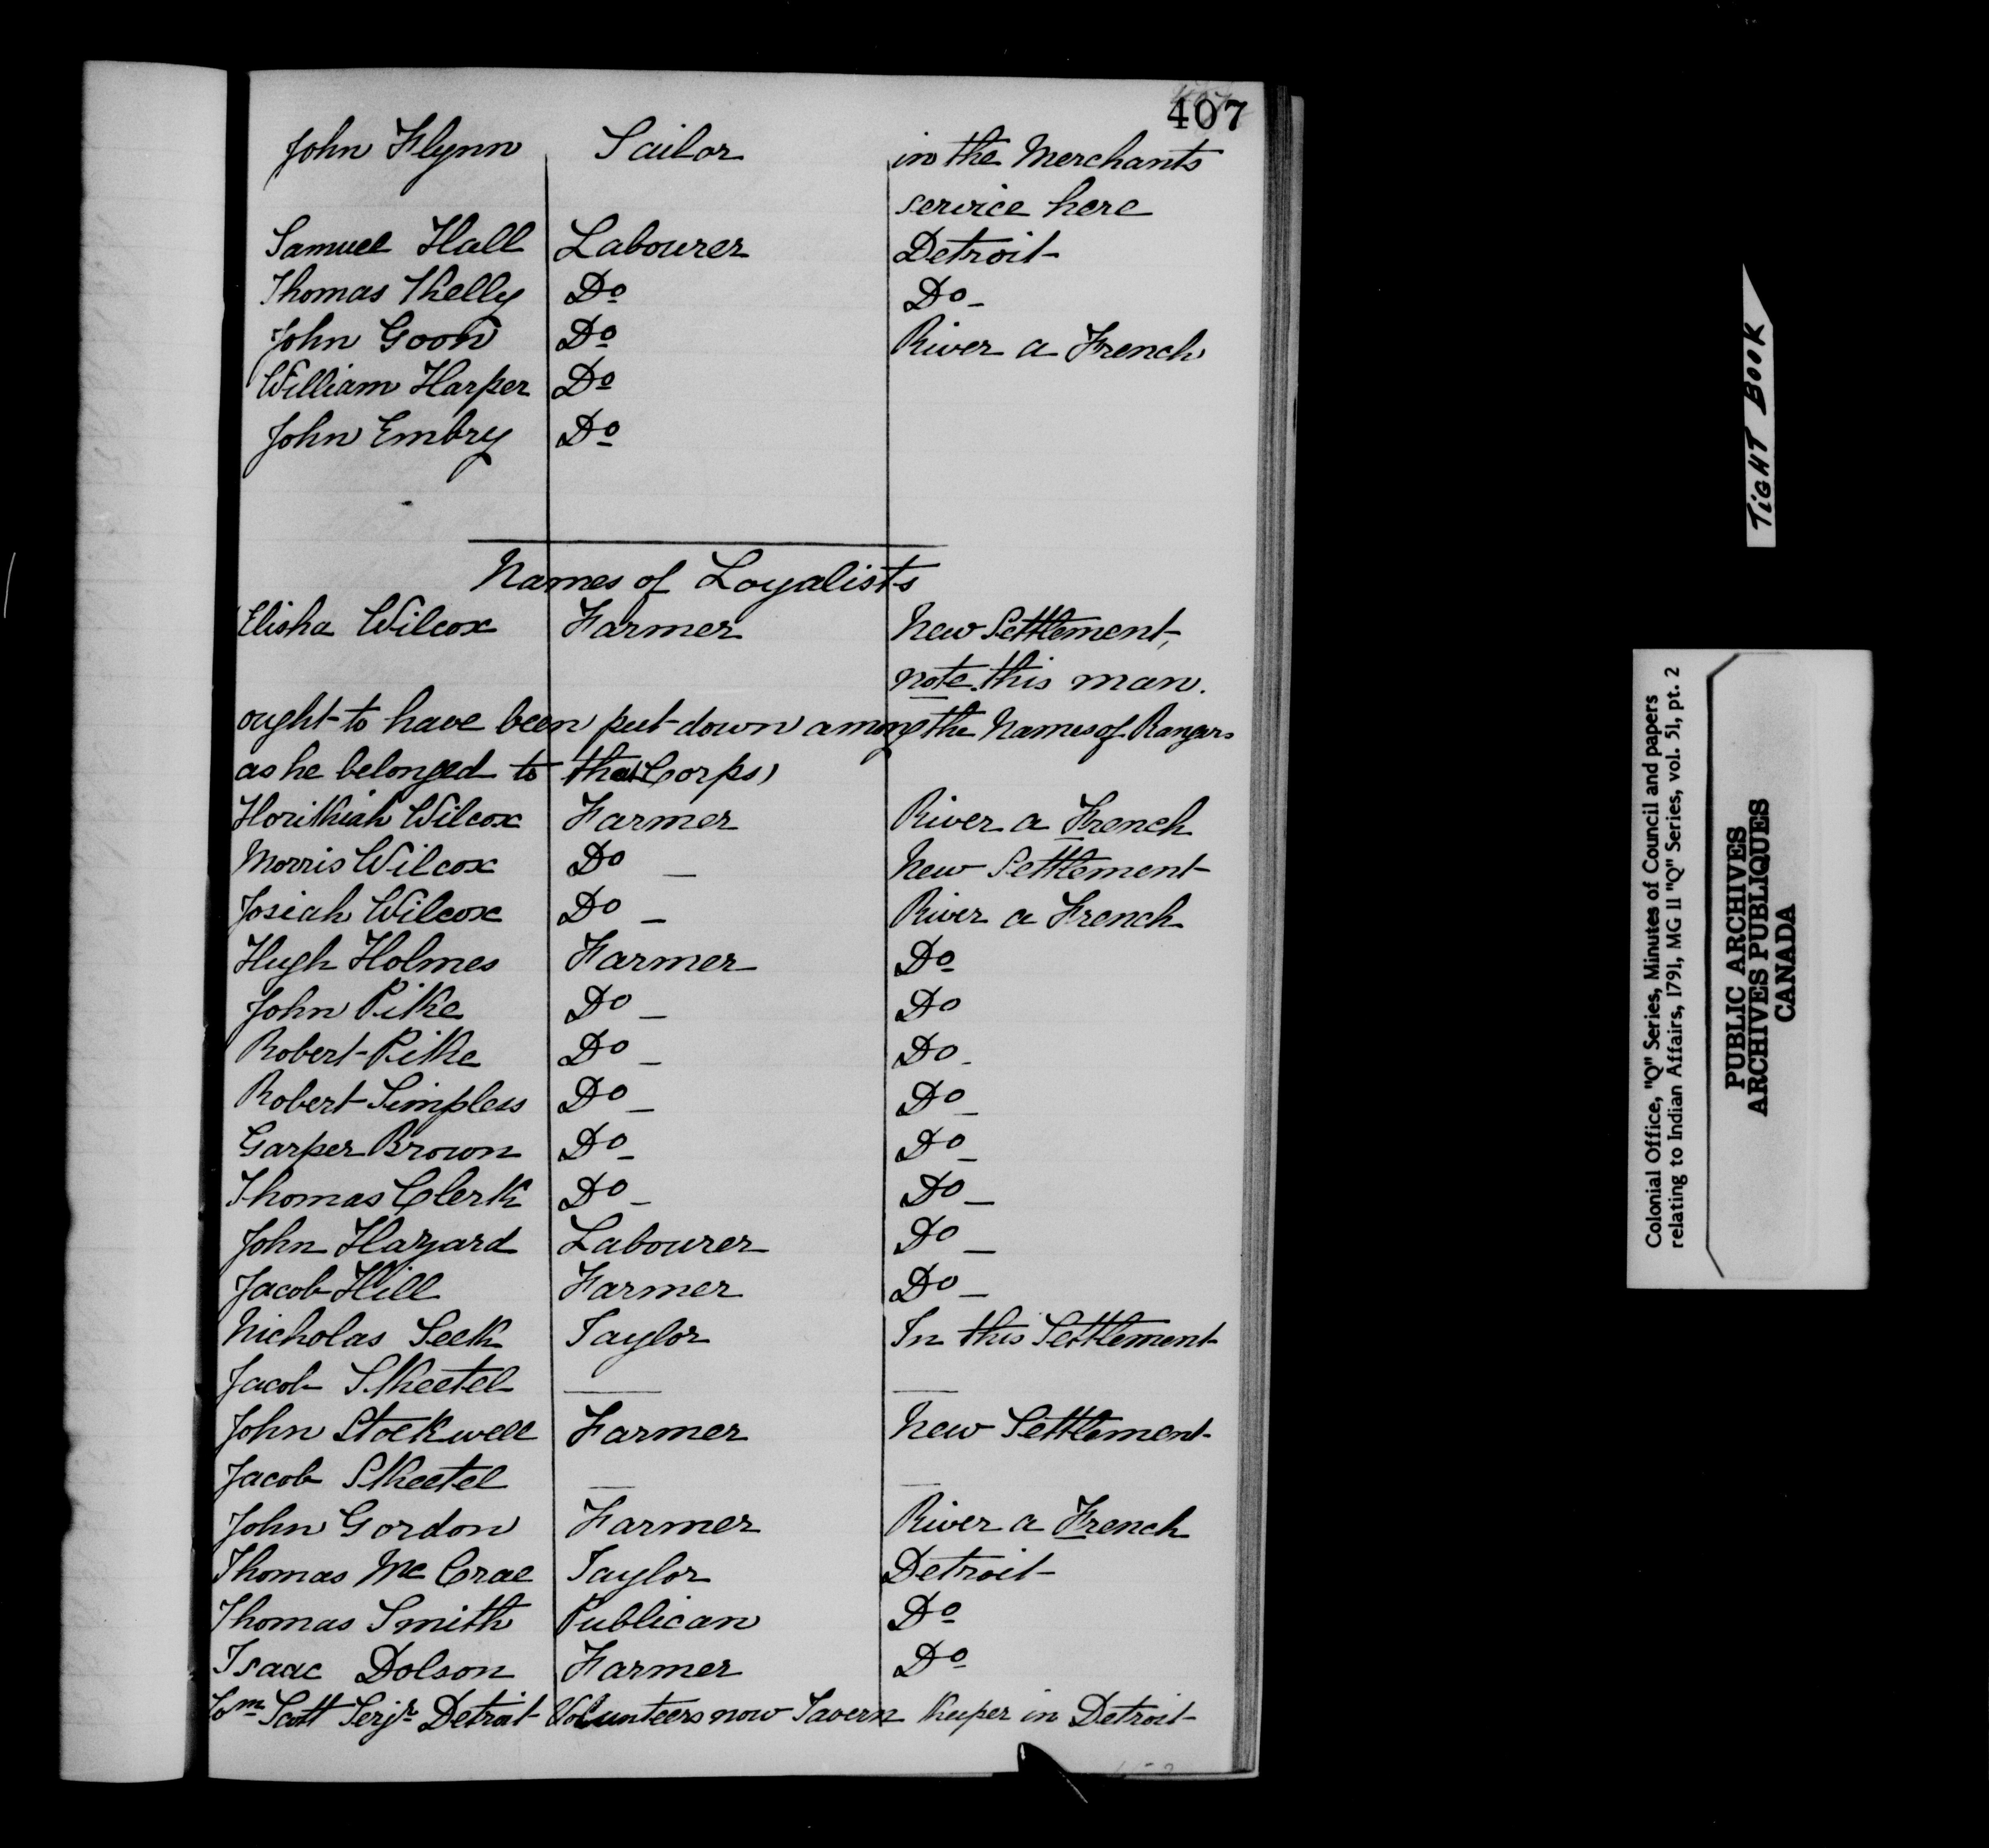 407
John Flynn Sailor in the Merchants
service here
Samuel Hall Labourer Detroit
Thomas Kelly Do Do
John Goon Do River a French
William Harper Do
John Embry Do
Names of Loyalists
Elisha Wilcox Farmer New Settlement,
note this man.
ought to have been put down among the Names of Rangers
as he belonged to that Corps)
Horikiah Wilcox Farmer River a French
Morris Wilcox Do New Settlement
Josiah Wilcox Do River a French
Hugh Holmes Farmer Do
John Pike Do Do
Robert Pike Do Do
Robert Simpless Do Do
Garper Brown Do Do
Thomas Clerk Do Do
John Hazard Labourer Do
Jacob Hill Farmer Do
Nicholas Seek Taylor In this Settlement
Jacob Skeetel — —
John Stockwell Farmer New Settlement
Jacob Skeetel — —
John Gordon Farmer River a French
Thomas McCrae Taylor Detroit
Thomas Smith Publican Do
Isaac Dolson Farmer Do
Wm Scott Serjt Detroit Volunteers now Tavern Keeper in Detroit
TIGHT BOOK
Colonial Office, "Q" Series, Minutes of Council and papers
relating to Indian Affairs, 1791, MG 11 "Q" Series, vol. 51, pt. 2
PUBLIC ARCHIVES
ARCHIVES PUBLIQUES
CANADA